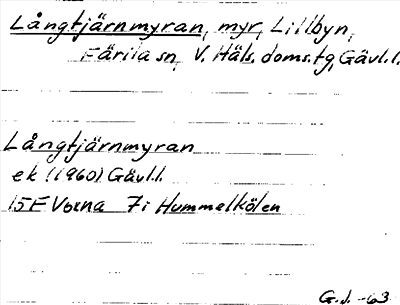 Långtjärnmyran, myr, Lillbyn,
Färila sn, V. Häls. doms.tg, Gävl.l.
Långtjärnmyran
ek (1960) Gävl.l
15F Voxna 7i Hummelkölen
G.J. -63